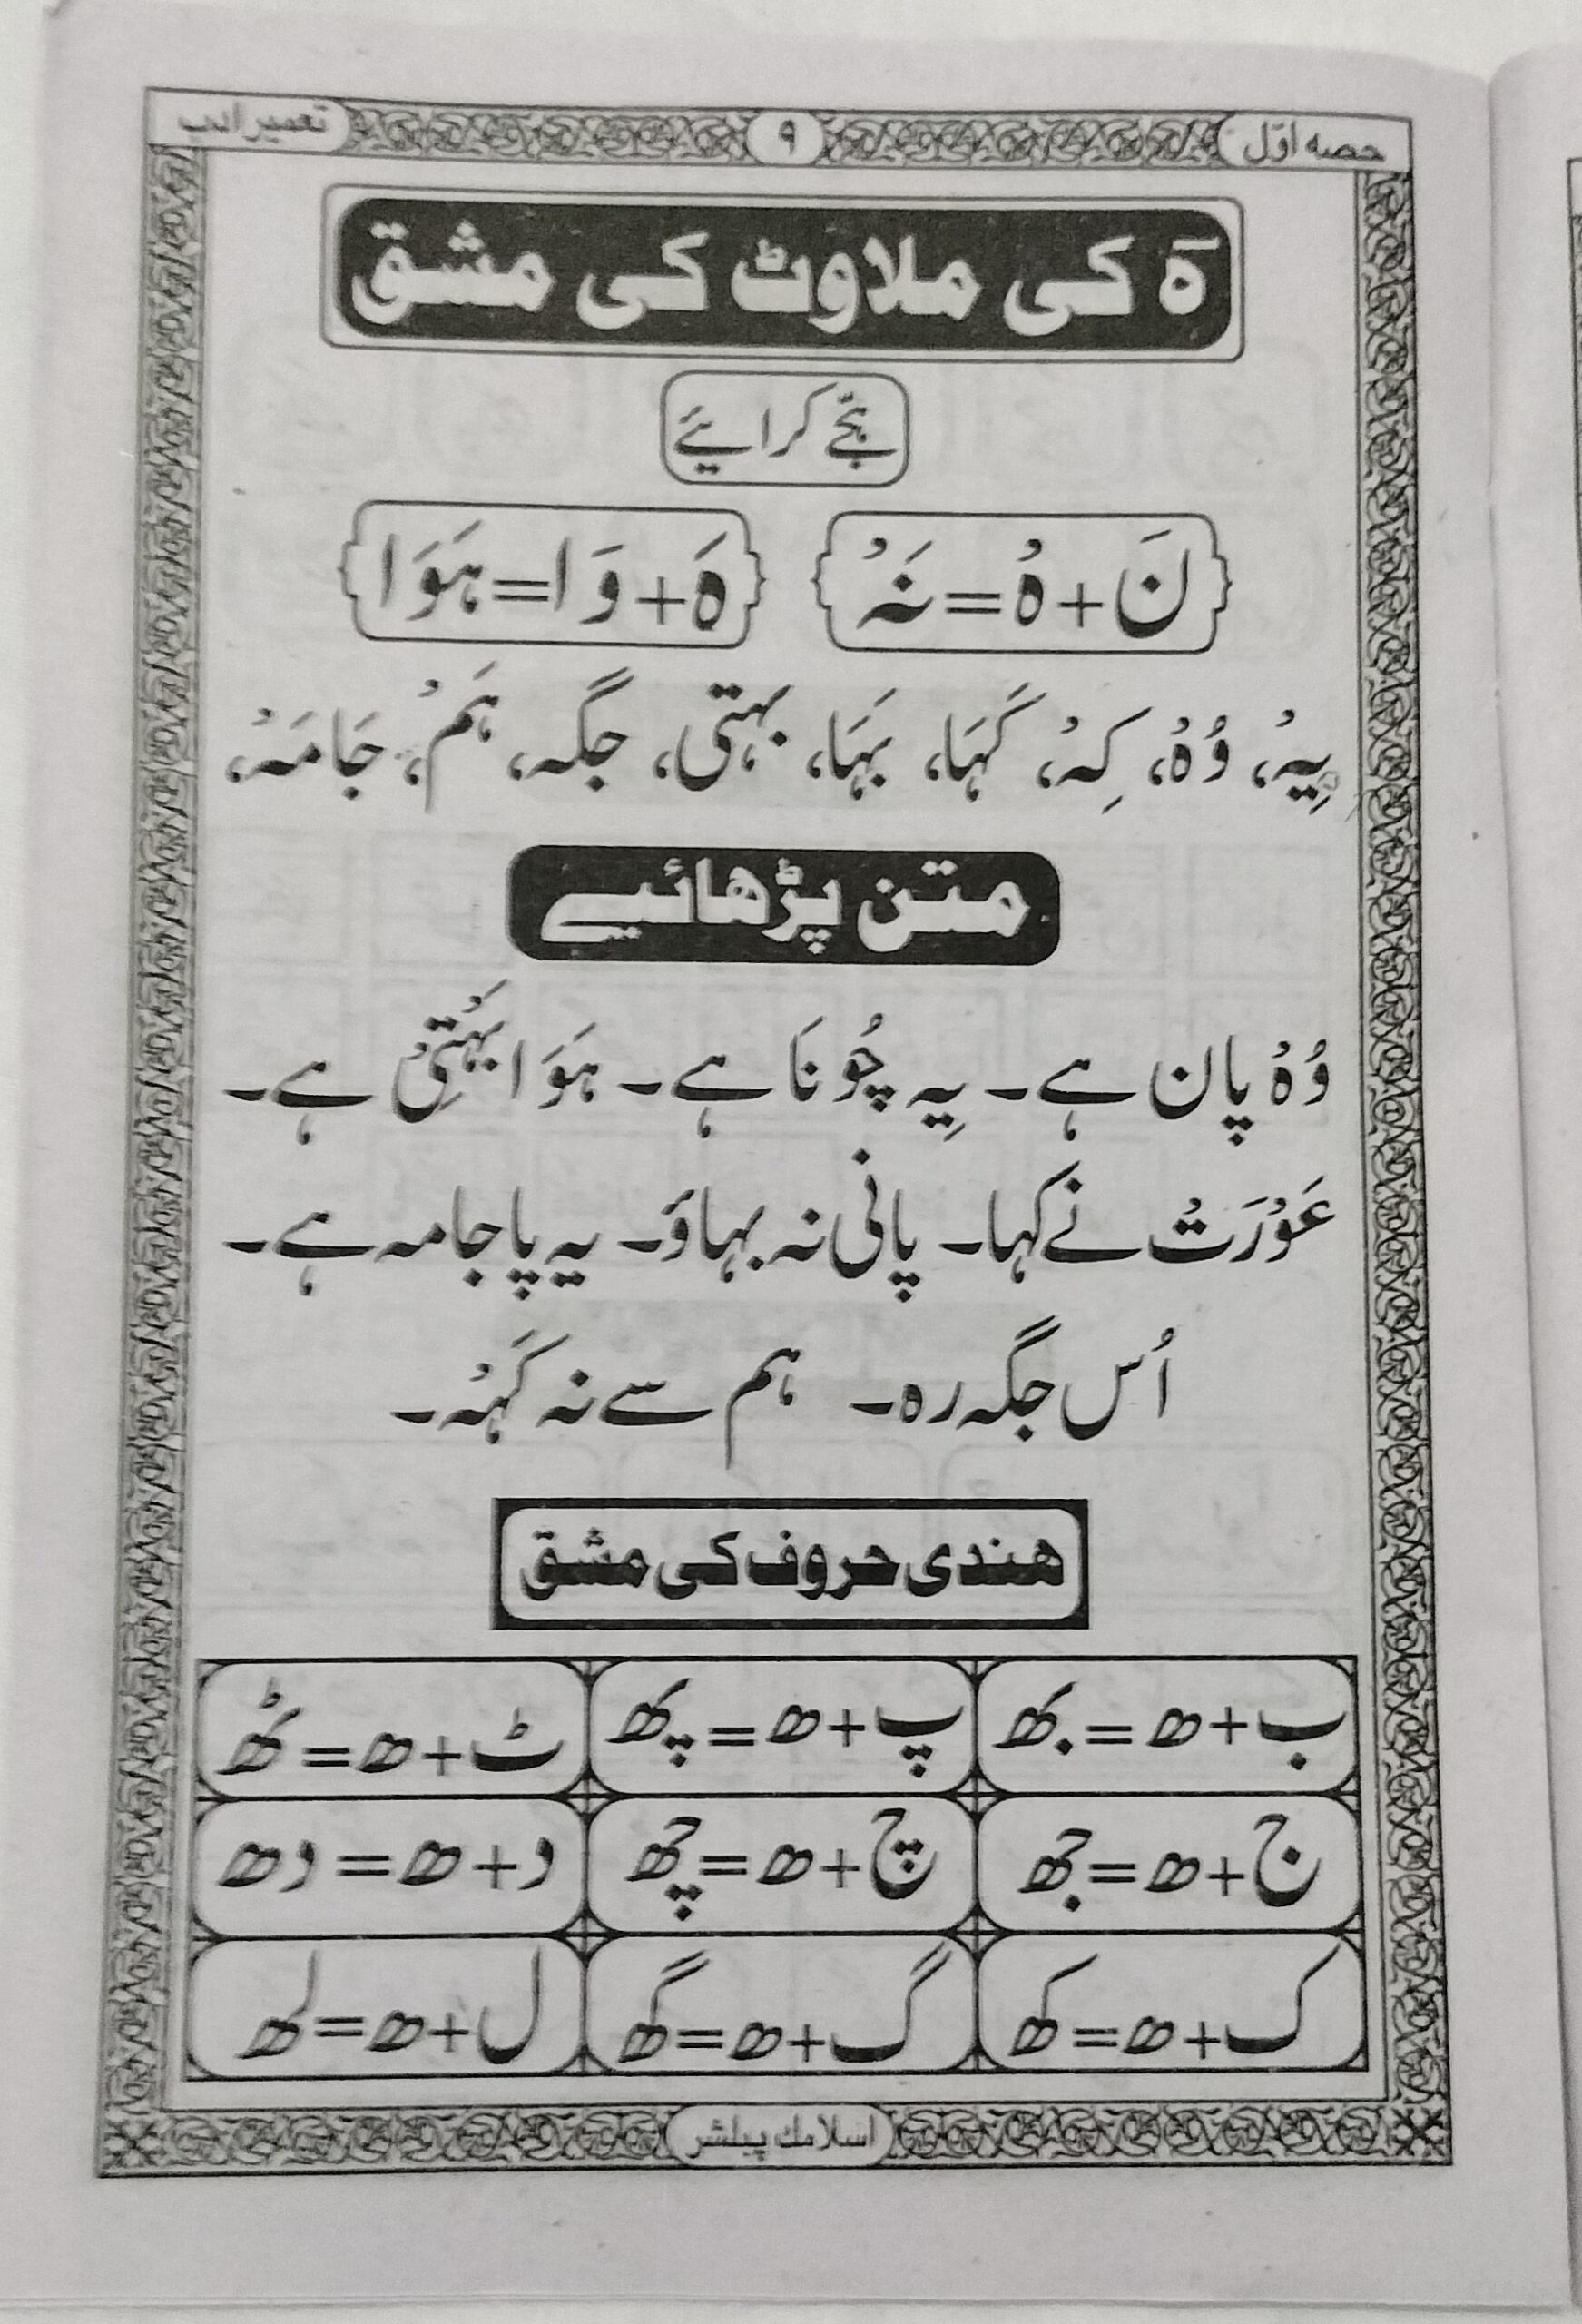 حصہ اوّل ۹ تعمیر ادب
ہ کی ملاوٹ کی مشق
ہجّے کرائیے
نَ+ہْ=نَہْ ہَ+وَا=ہَوَا
یِہْ، وُہْ، کِہْ، کَہَا، بَہَا، بہتی، جگہ، ہَمْ، جَامَہْ،
متن پڑھائیے
وُہْ پان ہے۔ یِہ چُونَا ہے۔ ہَوَا بَہْتِیْ ہے۔
عَوْرَتْ نے کہا۔ پانی نہ بہاؤ۔ یہ پاجامہ ہے۔
اُس جگہ رہ۔ ہم سے نہ کَہْ۔
ھندی حروف کی مشق
ب+ھ=بھ پ+ھ=پھ ٹ+ھ=ٹھ
ج+ھ=جھ چ+ھ=چھ د+ھ=دھ
ک+ھ=کھ گ+ھ=گھ ل+ھ=لھ
اسلامک پبلشر